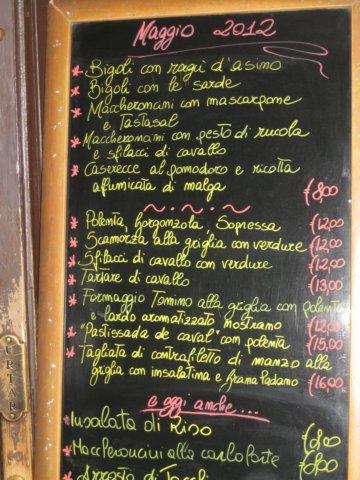 Maggio 2012
* Bigoli con ragù d'asino
* Bigoli con le sarde
* Maccheroncini con mascarpone
e Tastasal
* Maccheroncini con pesto di rucola
e sfilacci di cavallo
* Caserecce al pomodoro e ricotta
affumicata di malga €8,00
* Polenta, Gorgonzola, Sopressa €12,00
* Scamorza alla griglia con verdure €12,00
* Sfilacci di cavallo con verdure €12,00
* Tartare di cavallo €13,00
* Formaggio Tomino alla griglia con polenta
e lardo aromatizzato nostrano €12,00
* "Pastissada de caval" con polenta €15,00
* Tagliata di controfiletto di manzo alla
griglia con insalatina e Grana Padano €16,00
e oggi anche...
* Insalata di Riso €8,00
* Maccheroncini alla carloforte €8,00
* Arrosto di